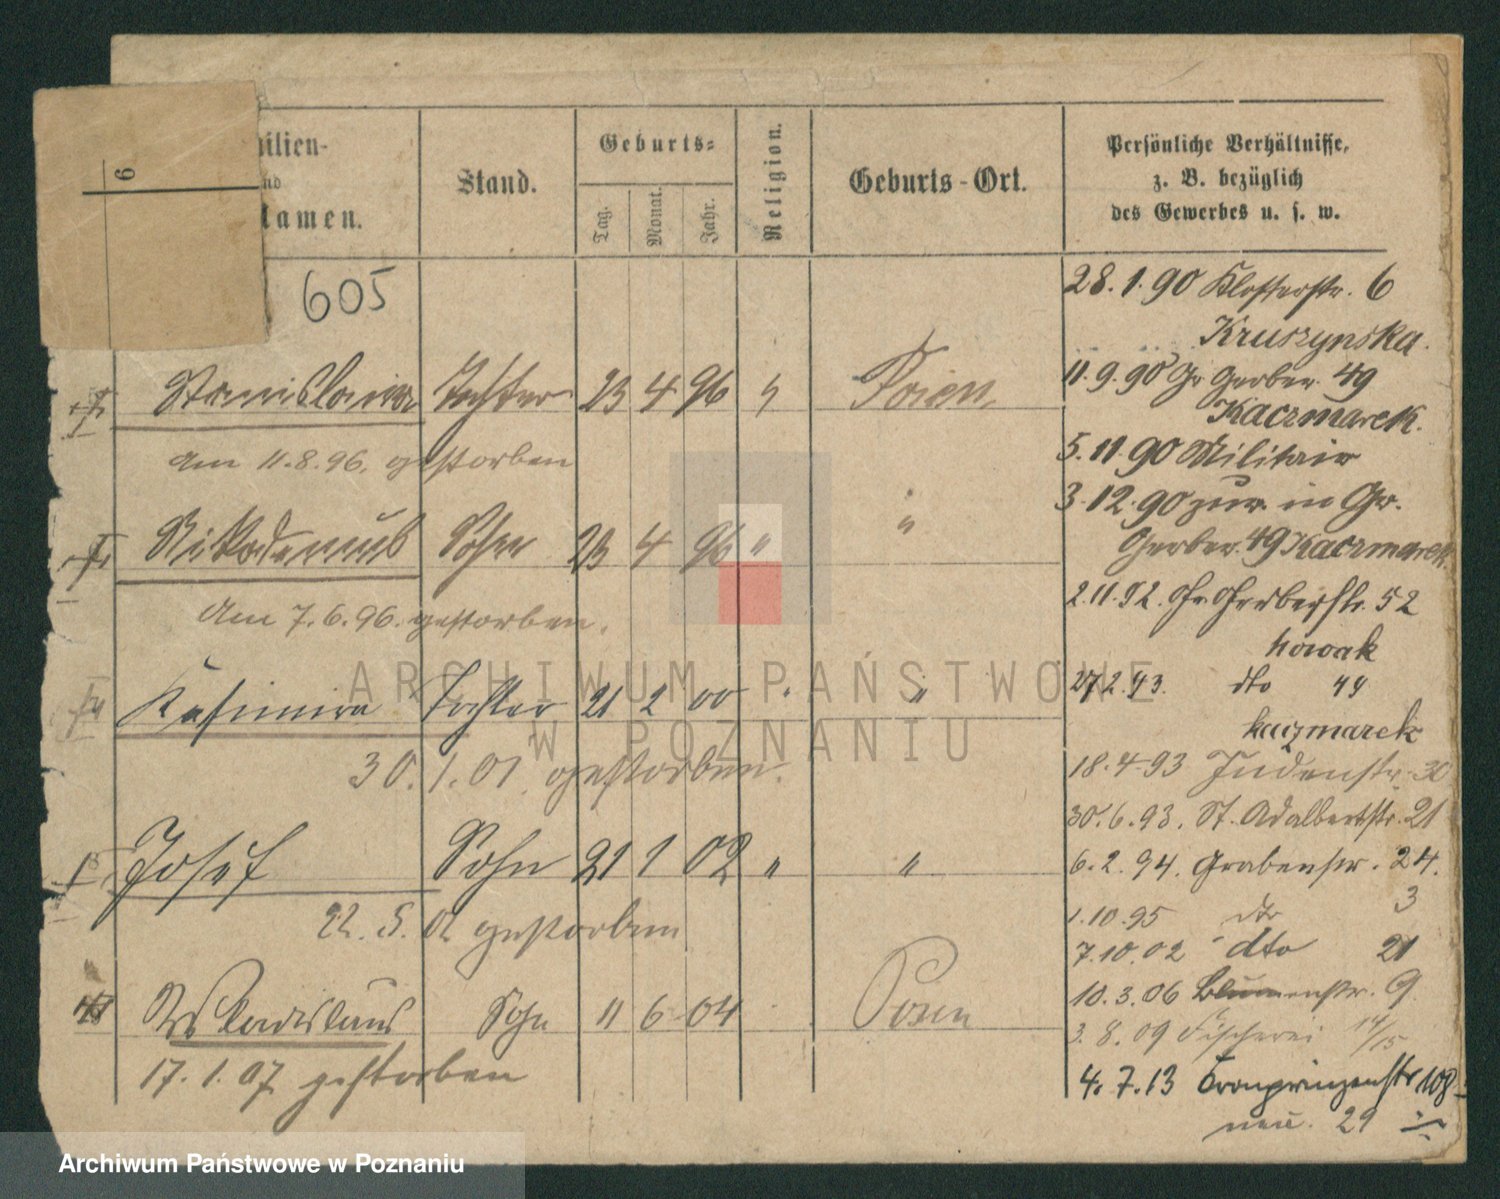 6
ilien-
nd
amen.
Stand.
Geburts-
Tag.
Monat.
Jahr.
Religion.
Geburts-Ort.
Persönliche Verhältnisse,
z. B. bezüglich
des Gewerbes u. s. w.
605
Stanislawa Tochter 23 4 96 Posen
am 11.8.96. gestorben
Nikodemus Sohn 23 4 96 " "
am 7.6.96. gestorben.
Kasimira Tochter 21 2 00 " "
30.1.01 gestorben.
Josef Sohn 21 1 02 " "
22.5.02 gestorben
Wladislaus Sohn 11 6 04 Posen
17.1.07 gestorben
28.1.90 Klosterstr. 6
Kruszynska.
11.9.90 Gr. Gerber. 49
Kaczmarek.
5.11.90 Militair
3.12.90 zur. in Gr.
Gerber. 49 Kaczmarek.
2.11.92. Gr. Gerberstr. 52
Nowak
27.2.93. dto 49
Kaczmarek
18.4.93 Judenstr. 30
30.6.93. St. Adalbertstr. 21
6.2.94. Grabenstr. 24.
1.10.95 dto 3
7.10.02 dto 21
10.3.06 Blumenstr. 9
3.8.09 Fischerei 14/15
4.7.13 Kronprinzenstr 108
neu. 29
ARCHIWUM PAŃSTWOWE
W POZNANIU
Archiwum Państwowe w Poznaniu